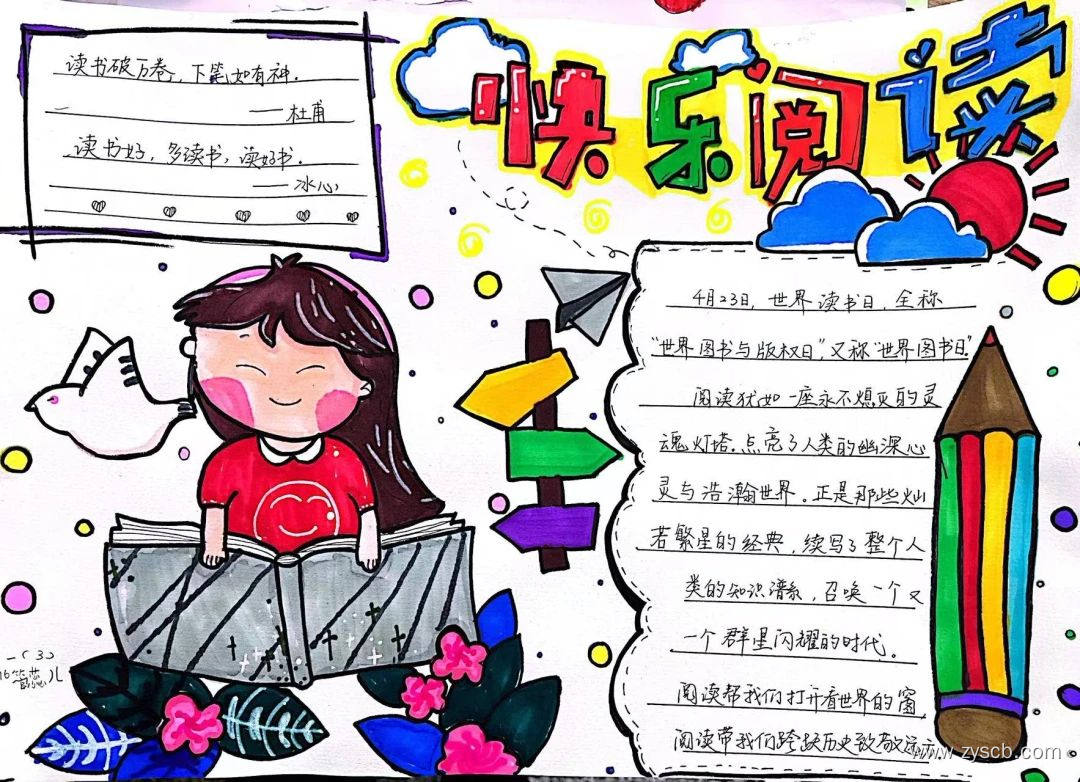 快乐阅读
读书破万卷，下笔如有神。
——杜甫
读书好，多读书，读好书。
——冰心
4月23日，世界读书日，全称
“世界图书与版权日”，又称“世界图书日”
阅读犹如一座永不熄灭的灵
魂灯塔。点亮了人类的幽深心
灵与浩瀚世界。正是那些灿
若繁星的经典，续写了整个人
类的知识谱系，召唤一个又
一个群星闪耀的时代。
阅读帮我们打开看世界的窗
阅读带我们跨越历史
www.zyscb.com